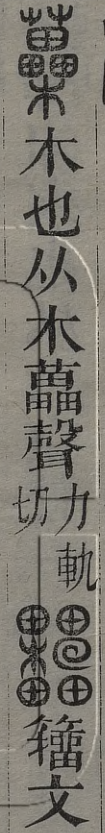 蘽木也从木藟聲力軌切籀文